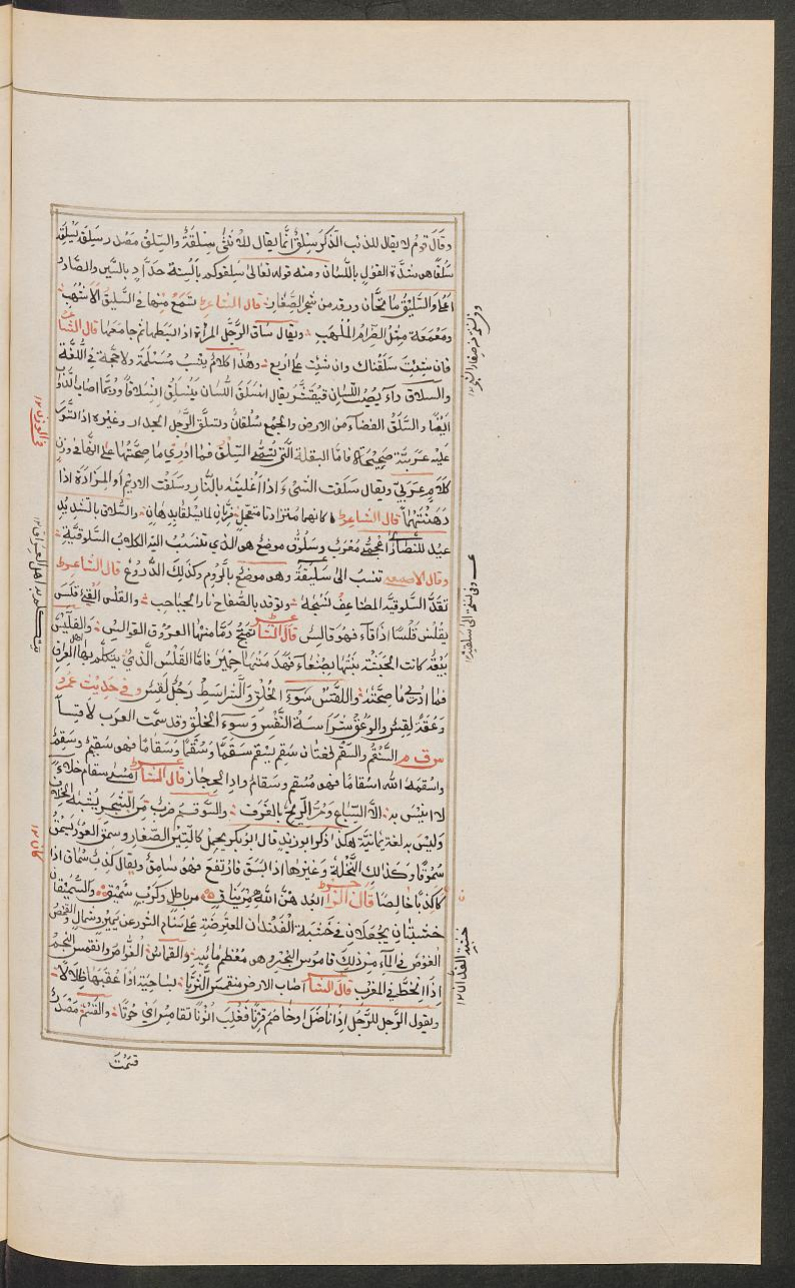 وقال قوم لا يقال للذئب الذكر سلق انما يقال للانثى سلقة والسلق مصدر سلقه يسلقه
سلقا هو شدة القول باللسان ومنه قوله تعالى سلقوكم بالسنة حداد بالسين والصاد و
والسليق ما تحات ورقه من شجر الصغار قال الشاعر تسمع منها في السليق الاشهب
ومعمعة مثل الضرام الملهب ويقال سلق الرجل المراة اذا بسطها ثم جامعها قال الشاعر
فان شئت سلقناك وان شئت على اربع وهذا كلام ينسب مسيلمة ولا حجة في اللغة
والسلاق داء يصيب اللسان فيقشر يقال انسلق اللسان ينسلق انسلاقا وربما اصاب
ايضا والسلق الفضاء من الارض والجمع سلقان وتسلق الرجل الجدار وغيره اذا تسور
عليه عربية صحيحة فاما البقلة التي تسمى السلق فما ادري ما صحتها على انها في وزن
كلام عربي ويقال سلقت الشيء اذا اغليته بالنار وسلقت الاديم او المزادة اذا
دهنتهما قال الشاعر كانهما مزادتا متعجل فريان لما تسلقا بدهان والسلاق بالتشديد
عيد للنصارى اعجمي معرب وسلوق موضع هو الذي تنسب اليه الكلاب السلوقية
وقال الاصمعي تنسب الى سلقية وهو موضع بالروم وكذلك الدروع قال الشاعر
تقد السلوقي المضاعف نسجه وتوقد بالصفاح نار الحباحب والقلس القيء قلس
يقلس قلسا اذا قاء فهو قالس قال الشاعر دما منها العروق القوالس والقليس
بيعة كانت الحبشة بنتها بصنعاء فهدمتها حمير فاما القلس الذي يتكلم بها اهل العراق
فما ادري ما صحته واللقس سوء الخلق رجل لقس وفي حديث عمر
وعقة لقس والوعق شراسة النفس وسوء الخلق وقد سمت العرب لاقسا
س ق م السقم والسقم لغتان سقم يسقم سقما وسقما وسقاما فهو سقيم وسقم
واسقمه الله اسقاما فهو مسقم وسقام واد بالحجاز قال الشاعر امسى سقام خلاء
لا انيس به الا السباع ومر الريح بالغرف والسوقم ضرب من الشجر يشبه الخلاف
وليس به لغة يمانية هكذا ذكر ابو زيد قال ابو بكر يحمل كالتين الصغار وسمق العود يسمق
سموقا وكذلك النخلة وغيرها اذا بسق فارتفع فهو سامق ويقال كذب سماق اذا
كان كذبا خالصا قال الراجز ابعدهن الله من نياق من باطل وكذب سماق والسميقان
خشبتان يجعلان في خشبة الفدان المعترضة على سنام الثور عن يمين وشمال والقمس
الغوص في الماء من ذلك قاموس البحر وهو معظم مائه والقماس الغواص وانقمس النجم
اذا انحط في المغرب قال الشاعر اصاب الارض منقمس الثريا بساحية اتبعها ظلالا
ويقول الرجل للرجل اذا ناضل او خاصم قرنا فغلب انما تقامس حوتا والقسم مصدر
قسمت
في الوزن ١٢
يتكلم به اهل العراق ١٢
كان ١٢